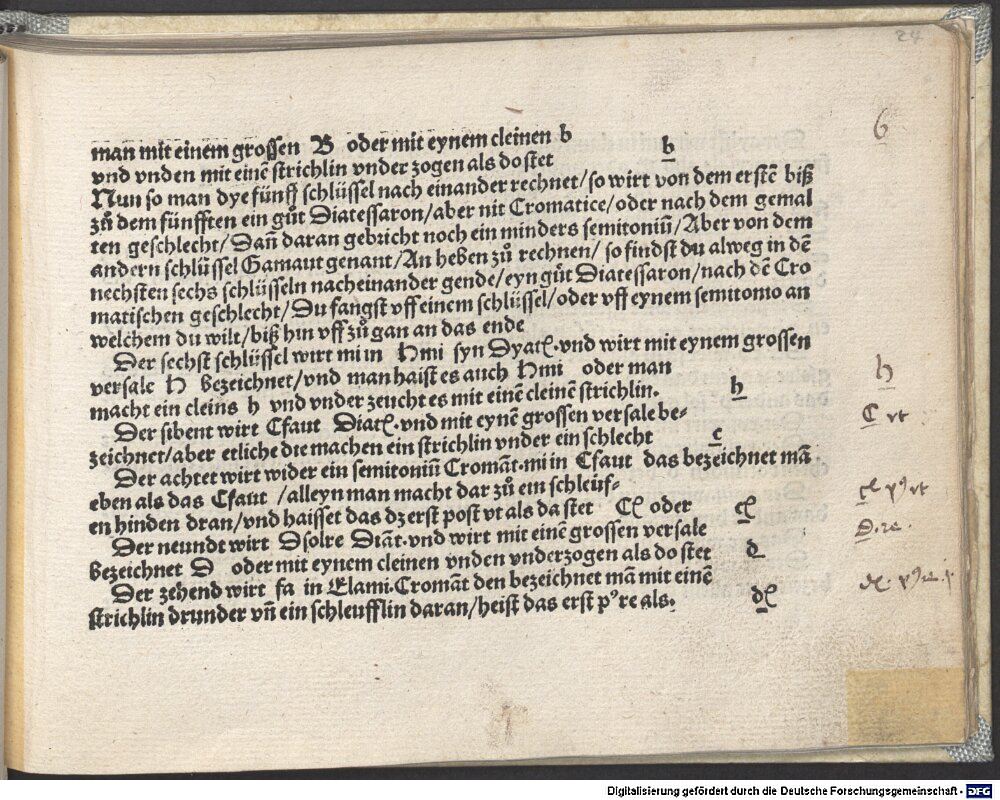 24
man mit einem grossen B oder mit eynem cleinen b
vnd vnden mit einē strichlin vnder zogen als do stet b
Nun so man dye fünff schlüssel nach einander rechnet/so wirt von dem erstē biß
zů dem fünfften ein gůt Diatessaron/aber nit Cromatice/oder nach dem gemal
ten geschlecht/Dañ daran gebricht noch ein minders semitoniū/Aber von dem
andern schlüssel Gamaut genant/An heben zů rechnen/so findst du alweg in dē
nechsten sechs schlüsseln nacheinander gende/eyn gůt Diatessaron/nach dē Cro
matischen geschlecht/Du fangst vff einem schlüssel/oder vff eynem semitonio an
welchem du wilt/biß hin vff zů gan an das ende
Der sechst schlüssel wirt mi in hmi syn Dyatꝭ.vnd wirt mit eynem grossen
versale h bezeichnet/vnd man haist es auch hmi oder man
macht ein cleins h vnd vnder zeucht es mit einē cleinē strichlin. h
Der sibent wirt Cfaut Diatꝭ.vnd mit eynē grossen versale be-
zeichnet/aber etliche die machen ein strichlin vnder ein schlecht c
Der achtet wirt wider ein semitoniū Cromāt.mi in Cfaut das bezeichnet mā
eben als das Cfaut /alleyn man macht dar zů ein schleuf-
en hinden dran/vnd haisset das dz erst post vt als da stet Cꝭ oder cꝭ
Der neundt wirt Dsolre Diāt.vnd wirt mit einē grossen versale
bezeichnet D oder mit eynem cleinen vnden vnderzogen als do stet d
Der zehend wirt fa in Elami.Cromāt den bezeichnet mā mit einē
strichlin drunder vñ ein schleufflin daran/heist das erst pꝰre als. dꝭ
6
h
C vt
cꝭ pꝰ vt
D. re.
Digitalisierung gefördert durch die Deutsche Forschungsgemeinschaft - DFG